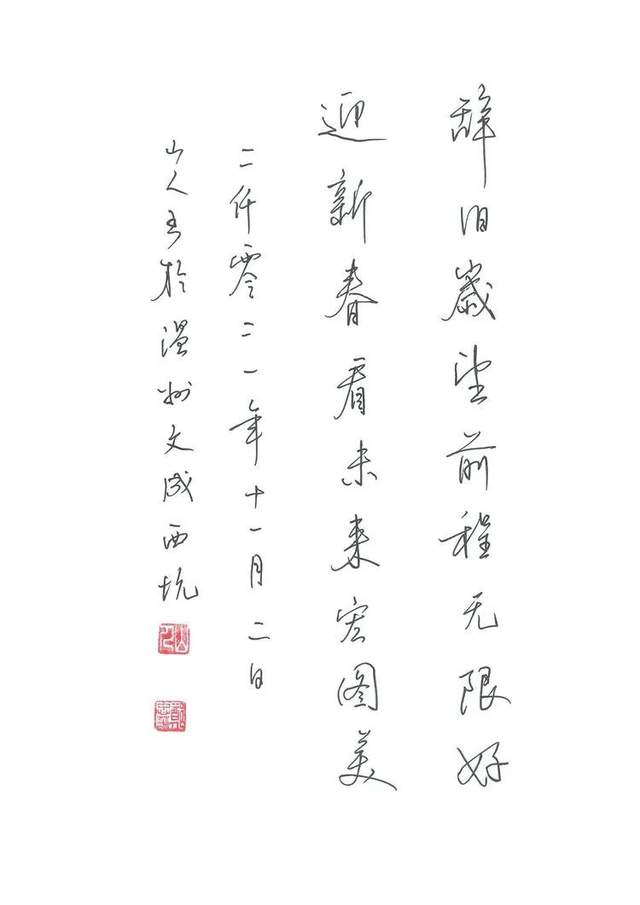 辞旧嵗望前程无限好
迎新春看未来宏图美
二仟零二一年十一月二日
山人书於温州文成西坑
山人